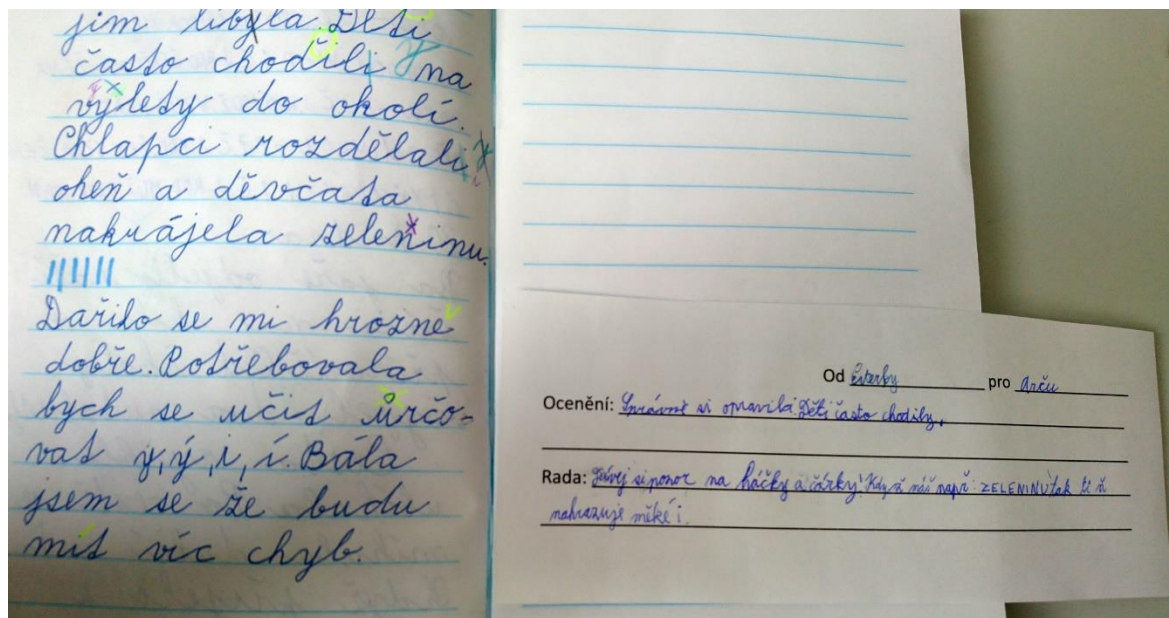 jim libyla. Děti
často chodili y na
výlety do okolí.
Chlapci rozdělali
oheň a děvčata
nakrájela zeleninu.
Dařilo se mi hrozně
dobře. Potřebovala
bych se učit určo-
vat y, ý, i, í. Bála
jsem se že budu
mít víc chyb.
Od pro Arču
Ocenění: Správně si opravila: Děti často chodily.
Rada: Dávej si pozor na háčky a čárky! Když máš např: ZELENINU tak ti ň
nahrazuje měké i.